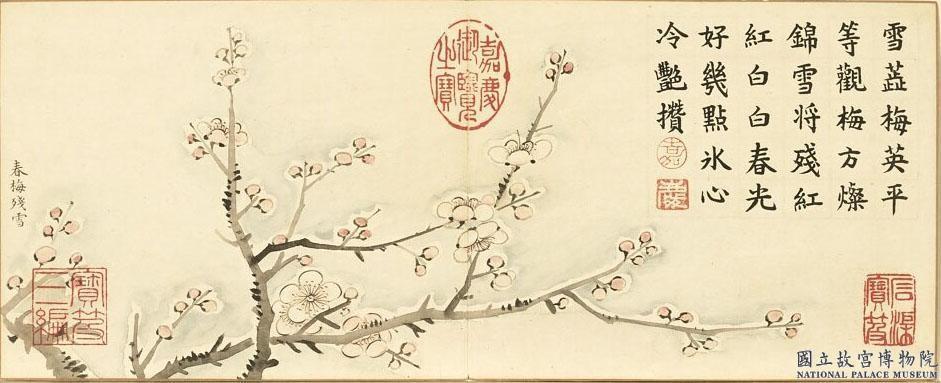 雪蕋梅英平
等觀梅方燦
錦雪将殘紅
紅白白春光
好幾點氷心
冷艷攢
嘉慶
御覽
之寶
春梅殘雪
寶笈
三編
國立故宮博物院
NATIONAL PALACE MUSEUM